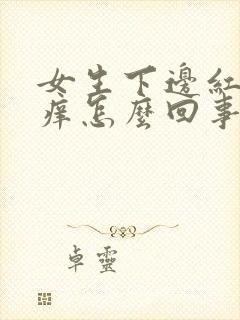 女生下邊紅
痒怎麼回事
卓靈